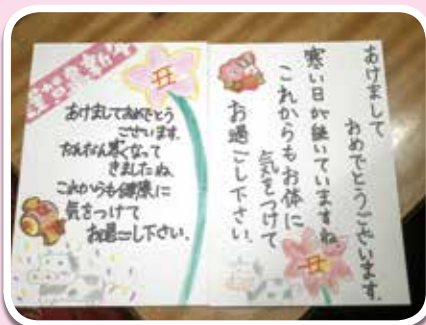 謹賀新年
丑
あけましておめでとう
ございます。
だんだん寒くなって
きましたね。
これからも健康に
気をつけて
お過ごし下さい。
あけまして
おめでとうございます。
寒い日が続いていますね
これからもお体に
気をつけて
お過ごし下さい。
丑